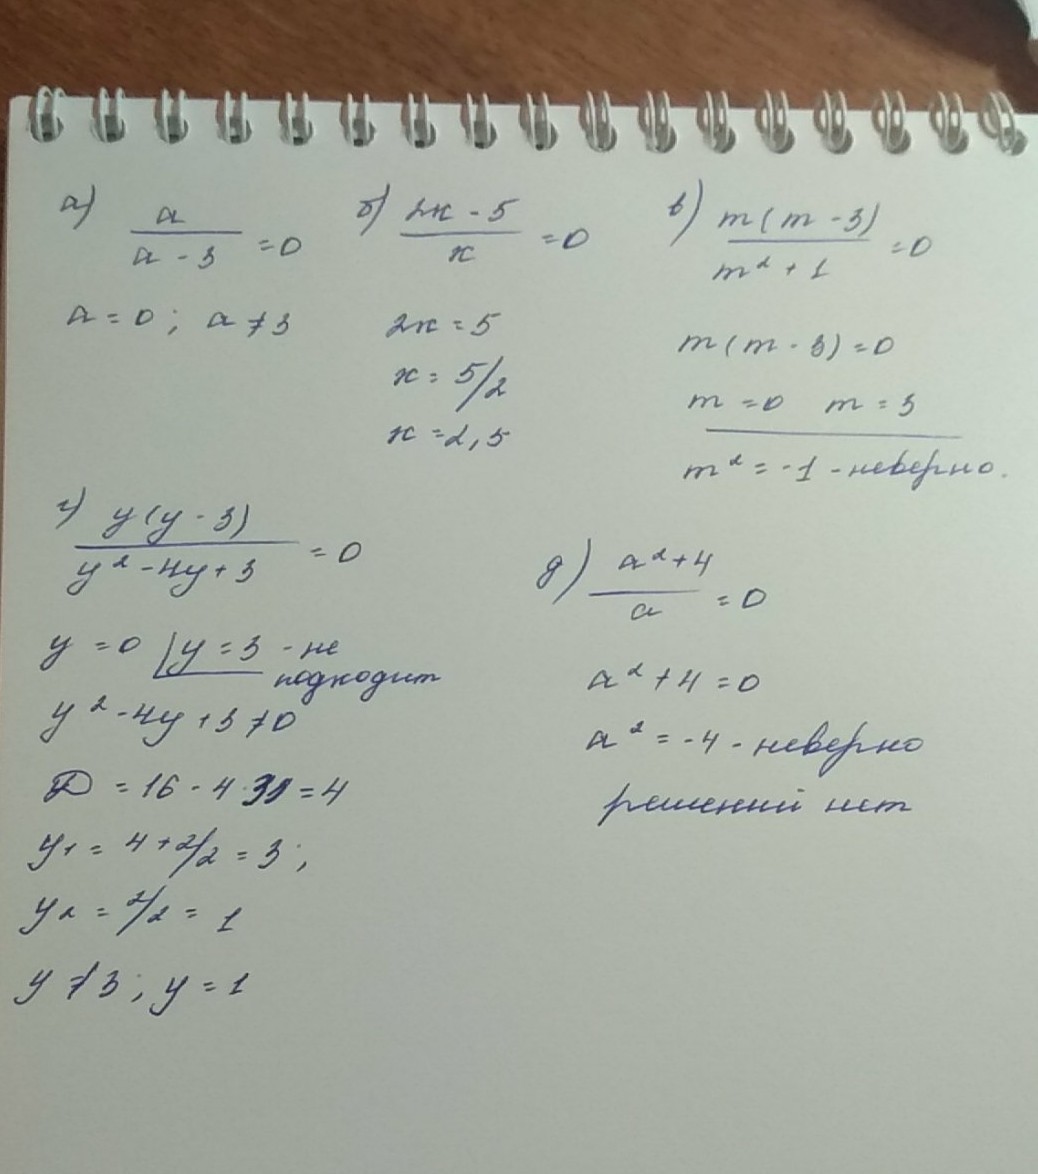 а) a / a - 3 = 0
a = 0 ; a ≠ 3
б) 2x - 5 / x = 0
2x = 5
x = 5/2
x = 2,5
в) m(m - 3) / m² + 1 = 0
m(m - 3) = 0
m = 0 m = 3
m² = -1 - неверно.
г) y(y - 3) / y² - 4y + 3 = 0
y = 0 y = 3 - не
подходит
y² - 4y + 3 ≠ 0
D = 16 - 4·3 = 4
y₁ = 4 + 2/2 = 3 ;
y₂ = 2/2 = 1
y ≠ 3 ; y = 1
д) a² + 4 / a = 0
a² + 4 = 0
a² = -4 - неверно
решений нет